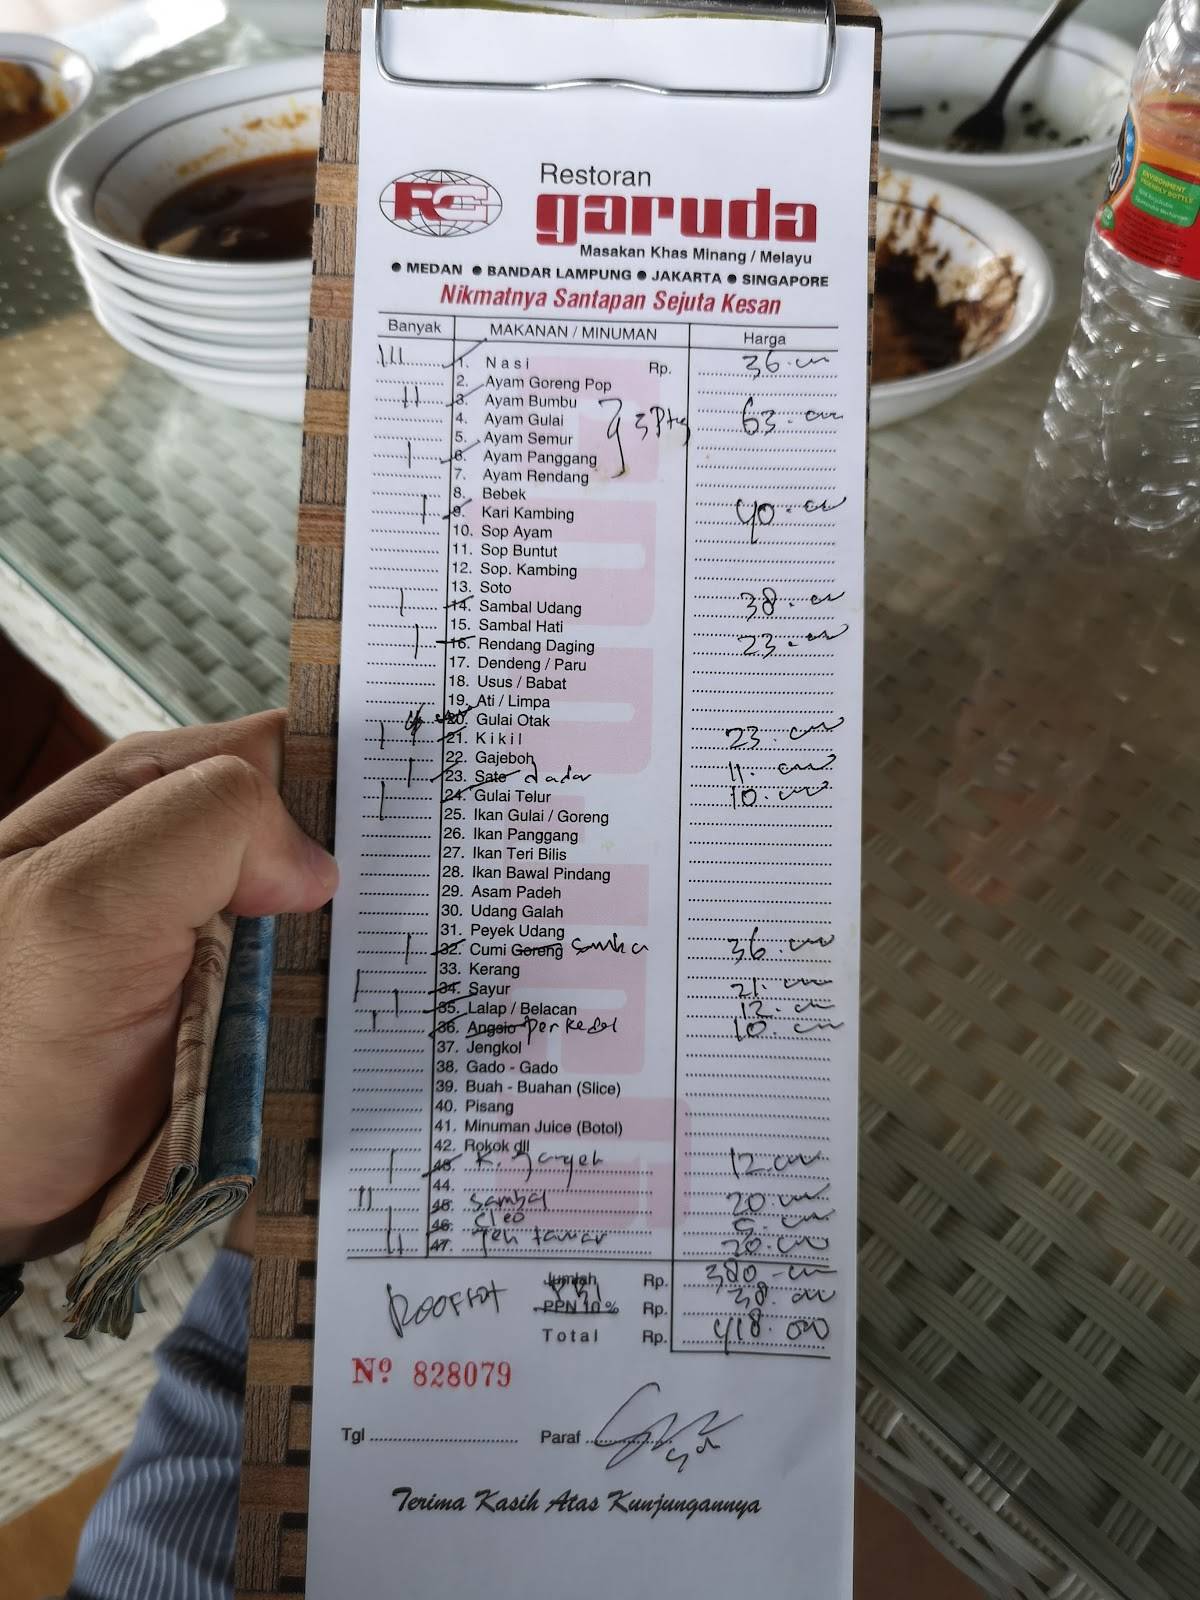 Restoran
RG garuda
Masakan Khas Minang / Melayu
● MEDAN ● BANDAR LAMPUNG ● JAKARTA ● SINGAPORE
Nikmatnya Santapan Sejuta Kesan
Banyak MAKANAN / MINUMAN Harga
1. Nasi Rp. 36.000
2. Ayam Goreng Pop
3. Ayam Bumbu
4. Ayam Gulai 3 Ptg 63.000
5. Ayam Semur
6. Ayam Panggang
7. Ayam Rendang
8. Bebek
9. Kari Kambing 40.000
10. Sop Ayam
11. Sop Buntut
12. Sop. Kambing
13. Soto
14. Sambal Udang 38.000
15. Sambal Hati
16. Rendang Daging 23.000
17. Dendeng / Paru
18. Usus / Babat
19. Ati / Limpa
20. Gulai Otak
21. Kikil 23.000
22. Gajeboh
23. Sate dadar 11.000
24. Gulai Telur 10.000
25. Ikan Gulai / Goreng
26. Ikan Panggang
27. Ikan Teri Bilis
28. Ikan Bawal Pindang
29. Asam Padeh
30. Udang Galah
31. Peyek Udang
32. Cumi Goreng 36.000
33. Kerang
34. Sayur 21.000
35. Lalap / Belacan 12.000
36. Angsio Perkedel 10.000
37. Jengkol
38. Gado - Gado
39. Buah - Buahan (Slice)
40. Pisang
41. Minuman Juice (Botol)
42. Rokok dll
43. 12.000
44.
45. Sambal 20.000
46. Cleo
47. Teh tawar 20.000
Jumlah Rp. 380.000
Rooftop PB1 PPN 10 % Rp. 38.000
Total Rp. 418.000
Nº 828079
Tgl Paraf
Terima Kasih Atas Kunjungannya
ENVIRONMENT
FRIENDLY BOTTLE